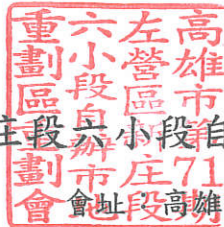 高雄市第71期
左營區新庄段
六小段自辦市地
重劃區重劃會
庄段六小段自
會址：高雄